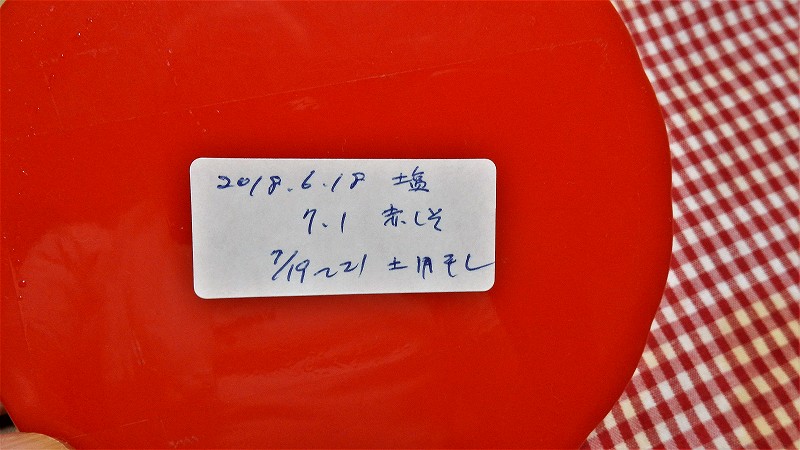 2018.6.18 塩
7.1 赤しそ
7/19~21 土用干し